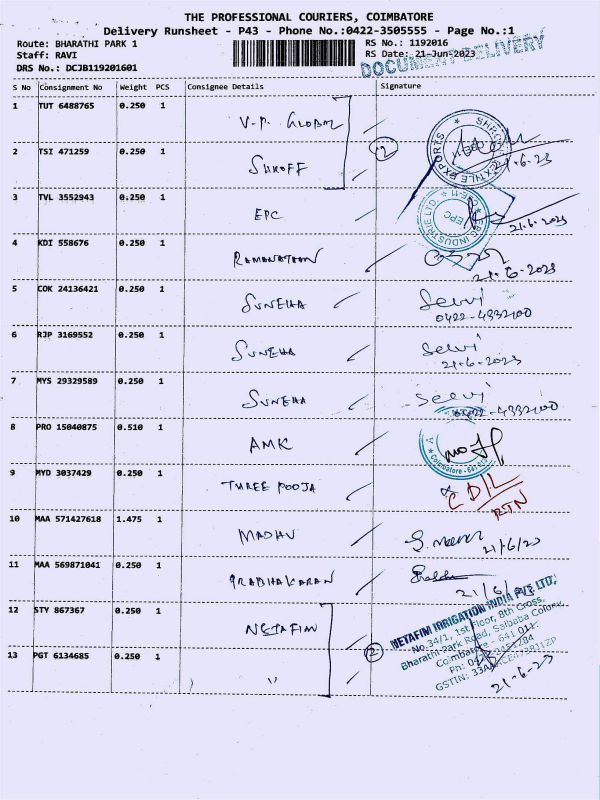 THE PROFESSIONAL COURIERS, COIMBATORE
Delivery Runsheet - P43 - Phone No.:0422-3505555 - Page No.:1
Route: BHARATHI PARK 1 RS No.: 1192016
Staff: RAVI RS Date: 21-Jun-2023
DRS No.: DCJB119201601 DOCUMENT DELIVERY
S No Consignment No Weight PCS Consignee Details Signature
1 TUT 6488765 0.250 1 V.P. GLOBAL
2 TSI 471259 0.250 1 2 TEXTILE EXPORTS 21.6.23
3 TVL 3552943 0.250 1 EPC EPC INDUSTRIE LTD. EPC 21.6.2023
4 KDI 558676 0.250 1 RAMANATHAN 21-6-2023
5 COK 24136421 0.250 1 SUNEHA Selvi
0422-4332100
6 RJP 3169552 0.250 1 SUNEHA Selvi
21-6-2023
7 MYS 29329589 0.250 1 SUNEHA Selvi
0422-4332100
8 PRO 15040875 0.510 1 AMK Coimbatore - 641
9 MYD 3037429 0.250 1 THREE POOJA C D/L
RTN
10 MAA 571427618 1.475 1 MADHV 21/6/23
11 MAA 569871041 0.250 1 PRABHAKARAN 21/6/23
12 STY 867367 0.250 1 NETAFIM
13 PGT 6134685 0.250 1 " 2
NETAFIM IRRIGATION INDIA PVT LTD,
No.34/1, 1st Floor, 8th Cross,
Bharathi Park Road, Saibaba Colony,
Coimbatore - 641 011.
Ph:
GSTIN:
21-6-23